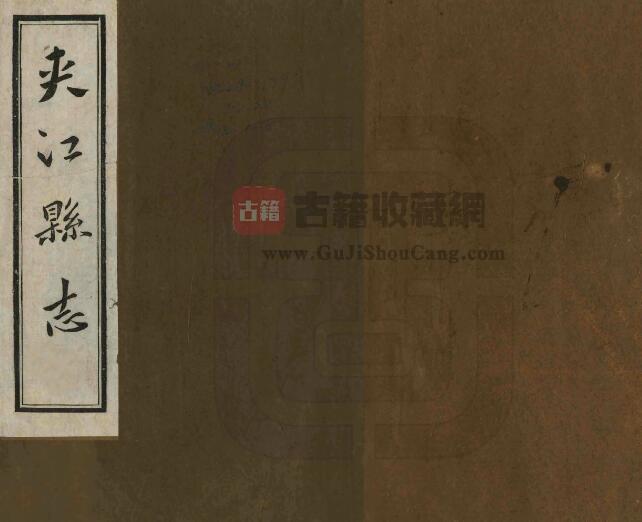 夹江縣志
古籍
古籍收藏網
www.GuJiShouCang.com